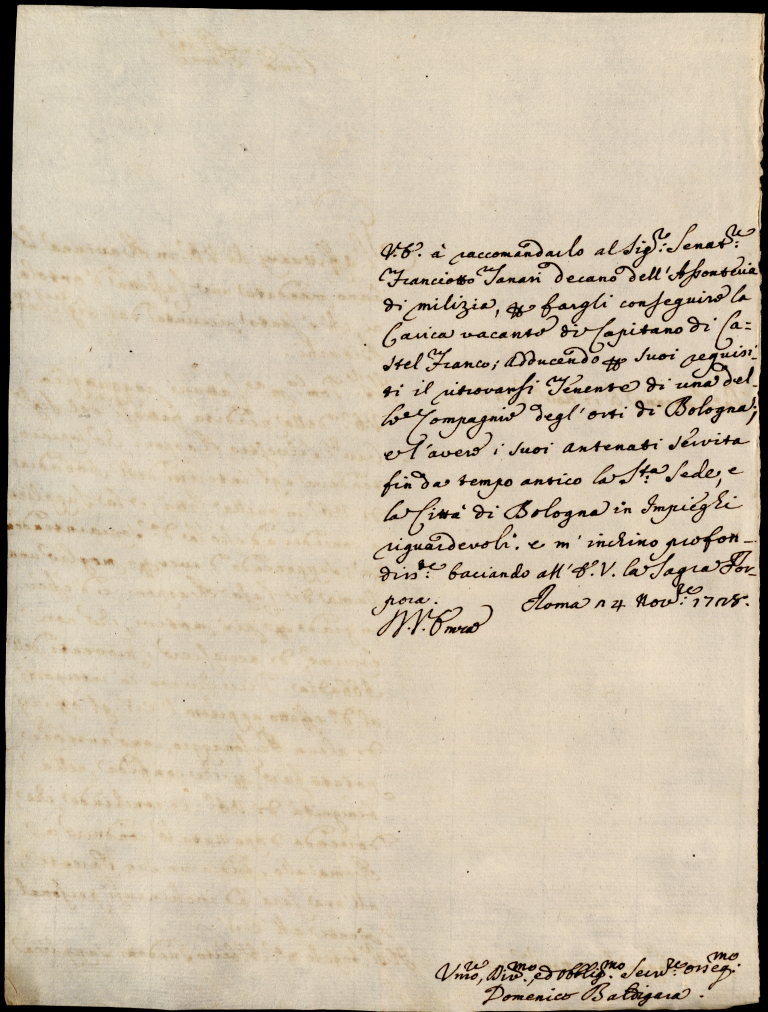 V.E. à raccomandarlo al Sig.re Senat.re
Franciotto Tanari decano dell'Assonteria
di milizia, p fargli conseguire la
Carica vacante di Capitano di Ca=
stel Franco; adducendo p suoi requisi-
ti il ritrovarsi Tenente di una del-
le Compagnie degl'orti di Bologna;
e l'avere i suoi antenati servita
fin da tempo antico la S.ta Sede, e
la Città di Bologna in Impieghi
riguardevoli. e m'inchino profon-
dis.te baciando all'E.V. la Sagra Por-
pora. Roma 24 Nov.re 1728.
V.V. Emza
Umo, Div.mo, ed obblig.mo Serv.re osseq.mo
Domenico Baldigara.